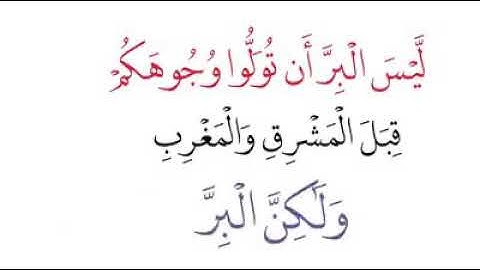 لَّيْسَ الْبِرَّ أَن تُوَلُّوا وُجُوهَكُمْ
قِبَلَ الْمَشْرِقِ وَالْمَغْرِبِ
وَلَٰكِنَّ الْبِرَّ